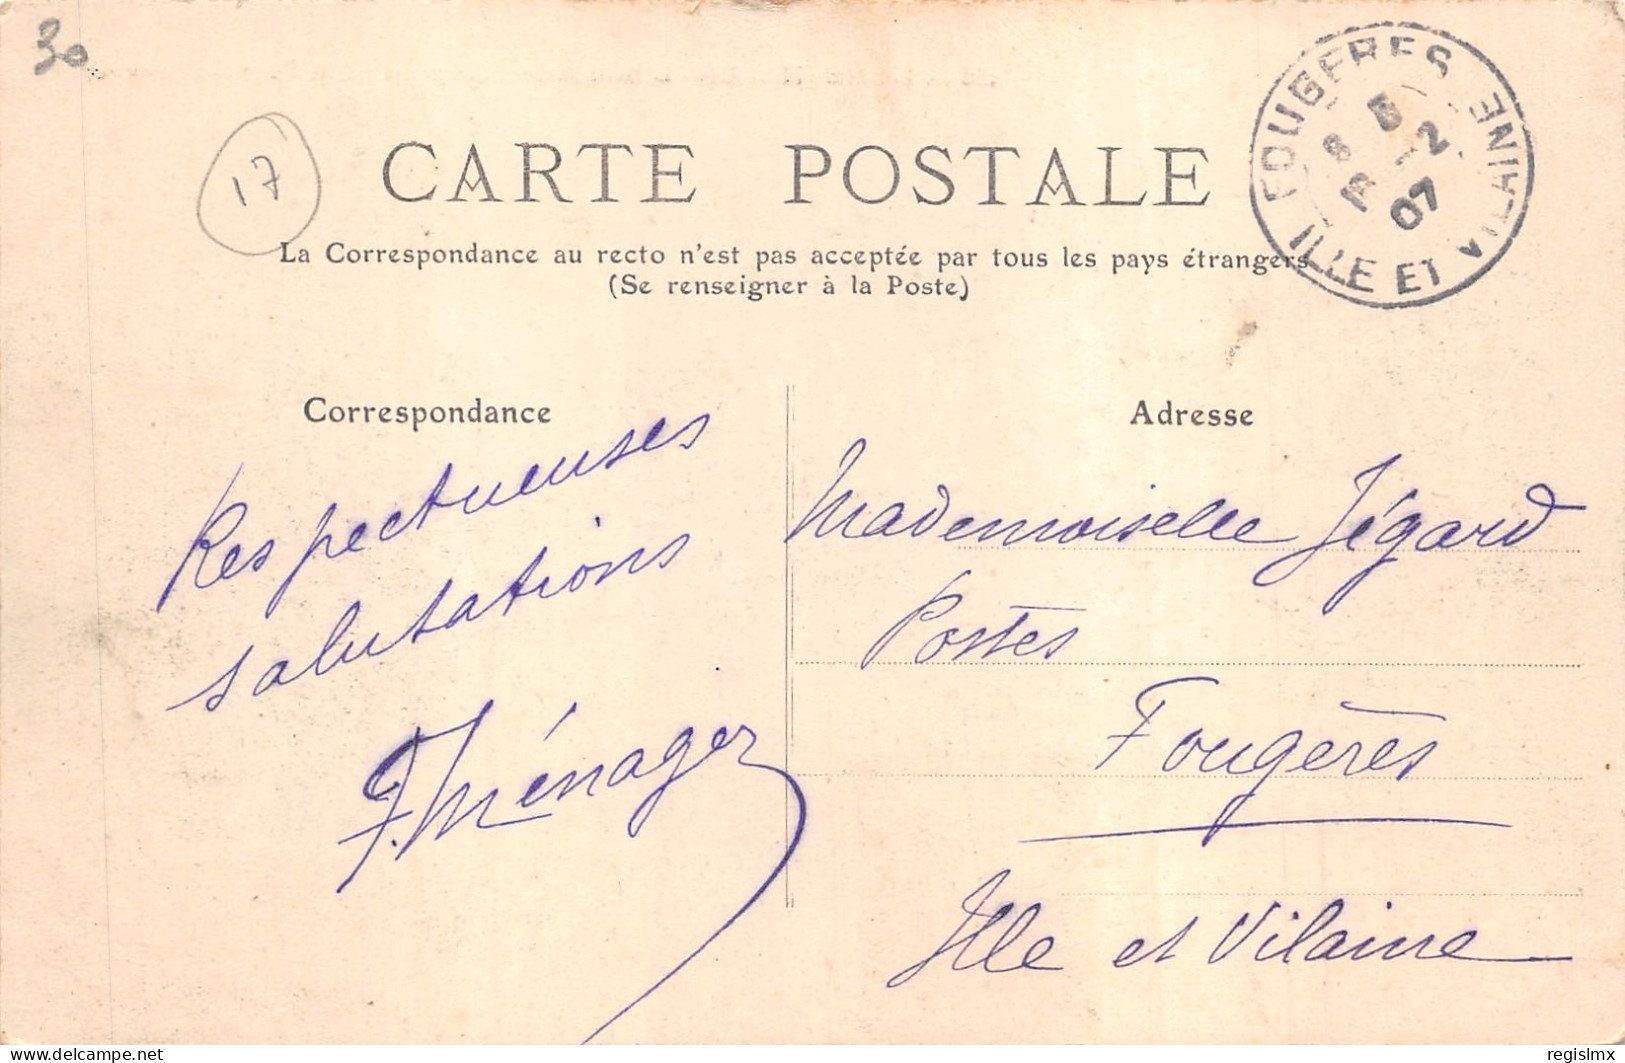 30
17
CARTE POSTALE
La Correspondance au recto n'est pas acceptée par tous les pays étrangers
(Se renseigner à la Poste)
FOUGERES
ILLE ET VILAINE
-2
07
Correspondance
Respectueuses
salutations
F. Ménager
Adresse
Mademoiselle Jégard
Postes
Fougères
Ille et Vilaine
www.delcampe.net
regislmx